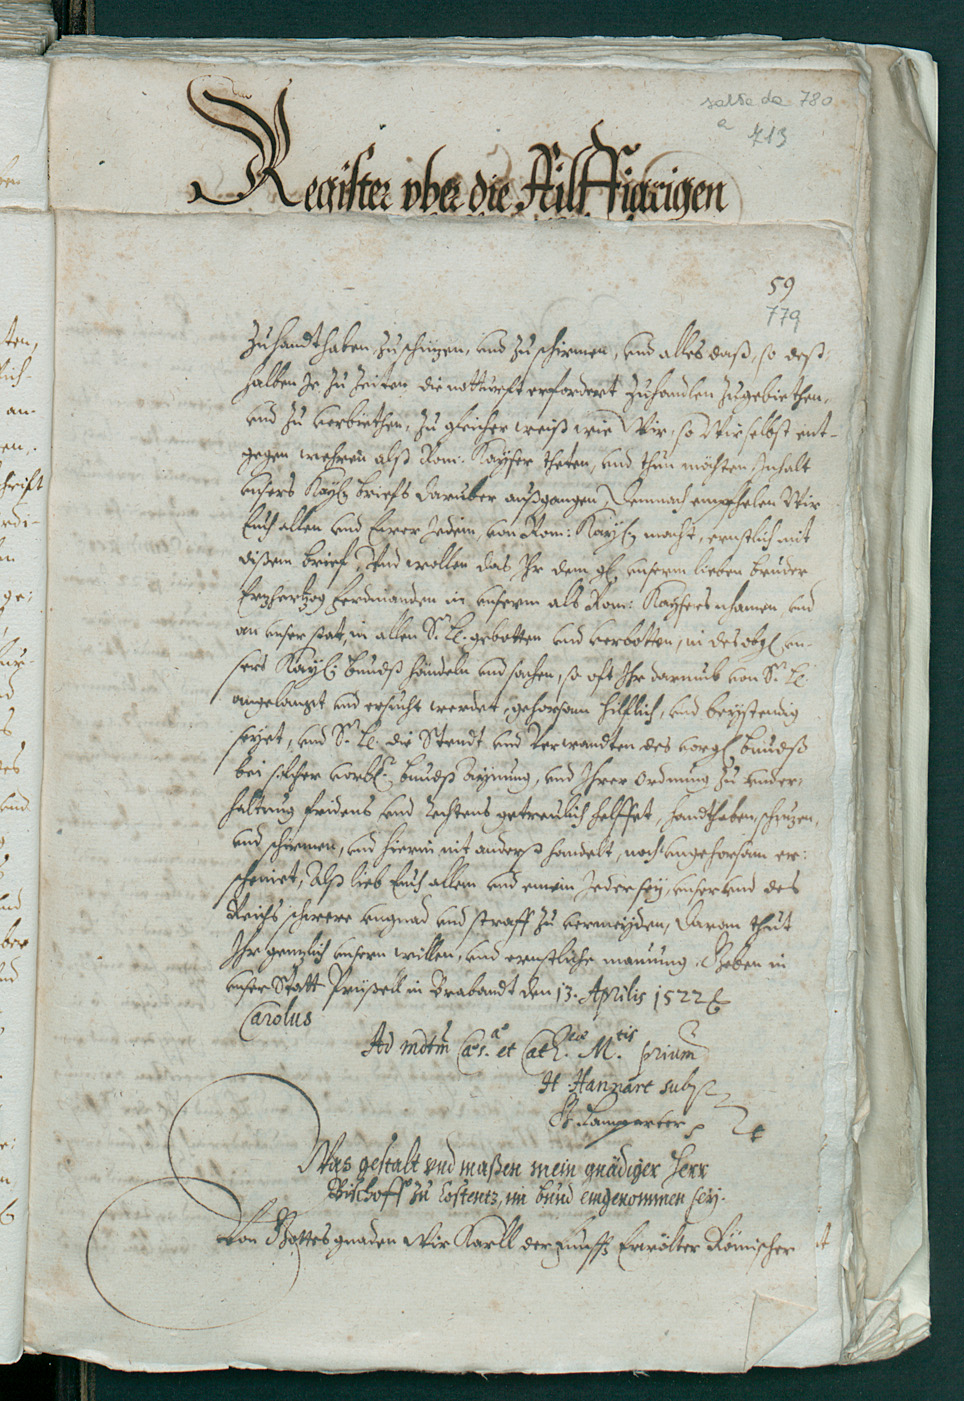 salta da 780
a 713
Register vber die Ailff Jarigen
59
779
Zuhandthaben, zu schützen, und zu schirmen, und alles daß, so deß-
halben Je zu Zeiten die notturfft erfordert Zuhandlen zugebiethen,
und zu verbiethen, zu gleicher weiß wie Wir, so Wir selbst ent-
gegen wehren alß Rom: Kayser theten, und thun möchten Inhalt
unsers Kay: briefs daruber außgangen, demnach empfhelen Wir
Euch allen und Eurer Jedem, von Rom: Kay: macht, ernstlich mit
dißem brief, Und wollen das Ihr dem gl. unserm lieben bruder
Ertzhertzog Ferdinanden in unserm alß Rom: Kaysers nhamen und
an unser statt, in allen Sr. Le. gebotten und verbotten, in des obgl. un-
sers Kay: bundß händeln und sachen, so oft Ihr darumb von Sr. Le.
angelangt und ersucht werdet, gehorsam hilflich, und beystendig
seyet, und Sr. Le. die Stendt und Verwandten des vorgl. bundß
bei solcher vorbl. bundß Aynung, und Ihrer Ordnung zu under-
haltung fridens und Rechtens getreulich helffet, handthaben, schuzen,
und schirmen, und hierin nit anderß handelt, noch ungehorsam er-
scheinet, Alß lieb Euch allen und einem Jeden sey, unser und des
Reichs schwere ungnad und straff zu vermeyden, daran thut
Ihr gentzlich unsern willen, und ernstliche mainung. Geben in
unser Statt Prüßell in Brabandt den 13. Aprilis 1522
Carolus
Ad mdtm Caes.ae et Cath.cae M.tis prium
H Hannart subst.
Was gestalt und maßen mein gnädiger Herr
Bischoff zu Costentz, im bund eingenommen sey.
Von Gottes gnaden Wir Karll der funfft Erwölter Römischer